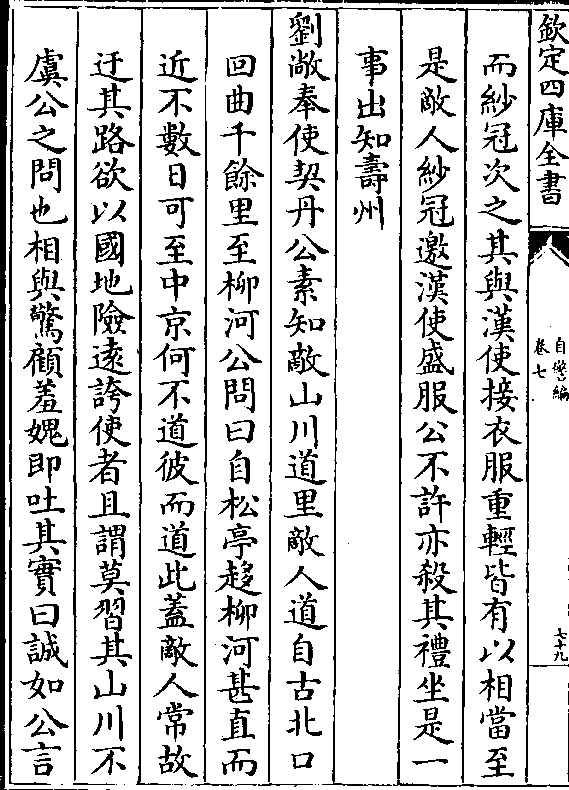 欽定四庫全書
自警編
卷七
七十九
而紗冠次之其與漢使接衣服重輕皆有以相當至
是敵人紗冠邀漢使盛服公不許亦殺其禮坐是一
事出知壽州
劉敞奉使契丹公素知敵山川道里敵人道自古北口
回曲千餘里至柳河公問曰自松亭趍柳河甚直而
近不數日可至中京何不道彼而道此蓋敵人常故
迂其路欲以國地險逺誇使者且謂莫習其山川不
虞公之問也相與驚顧羞媿即吐其實曰誠如公言